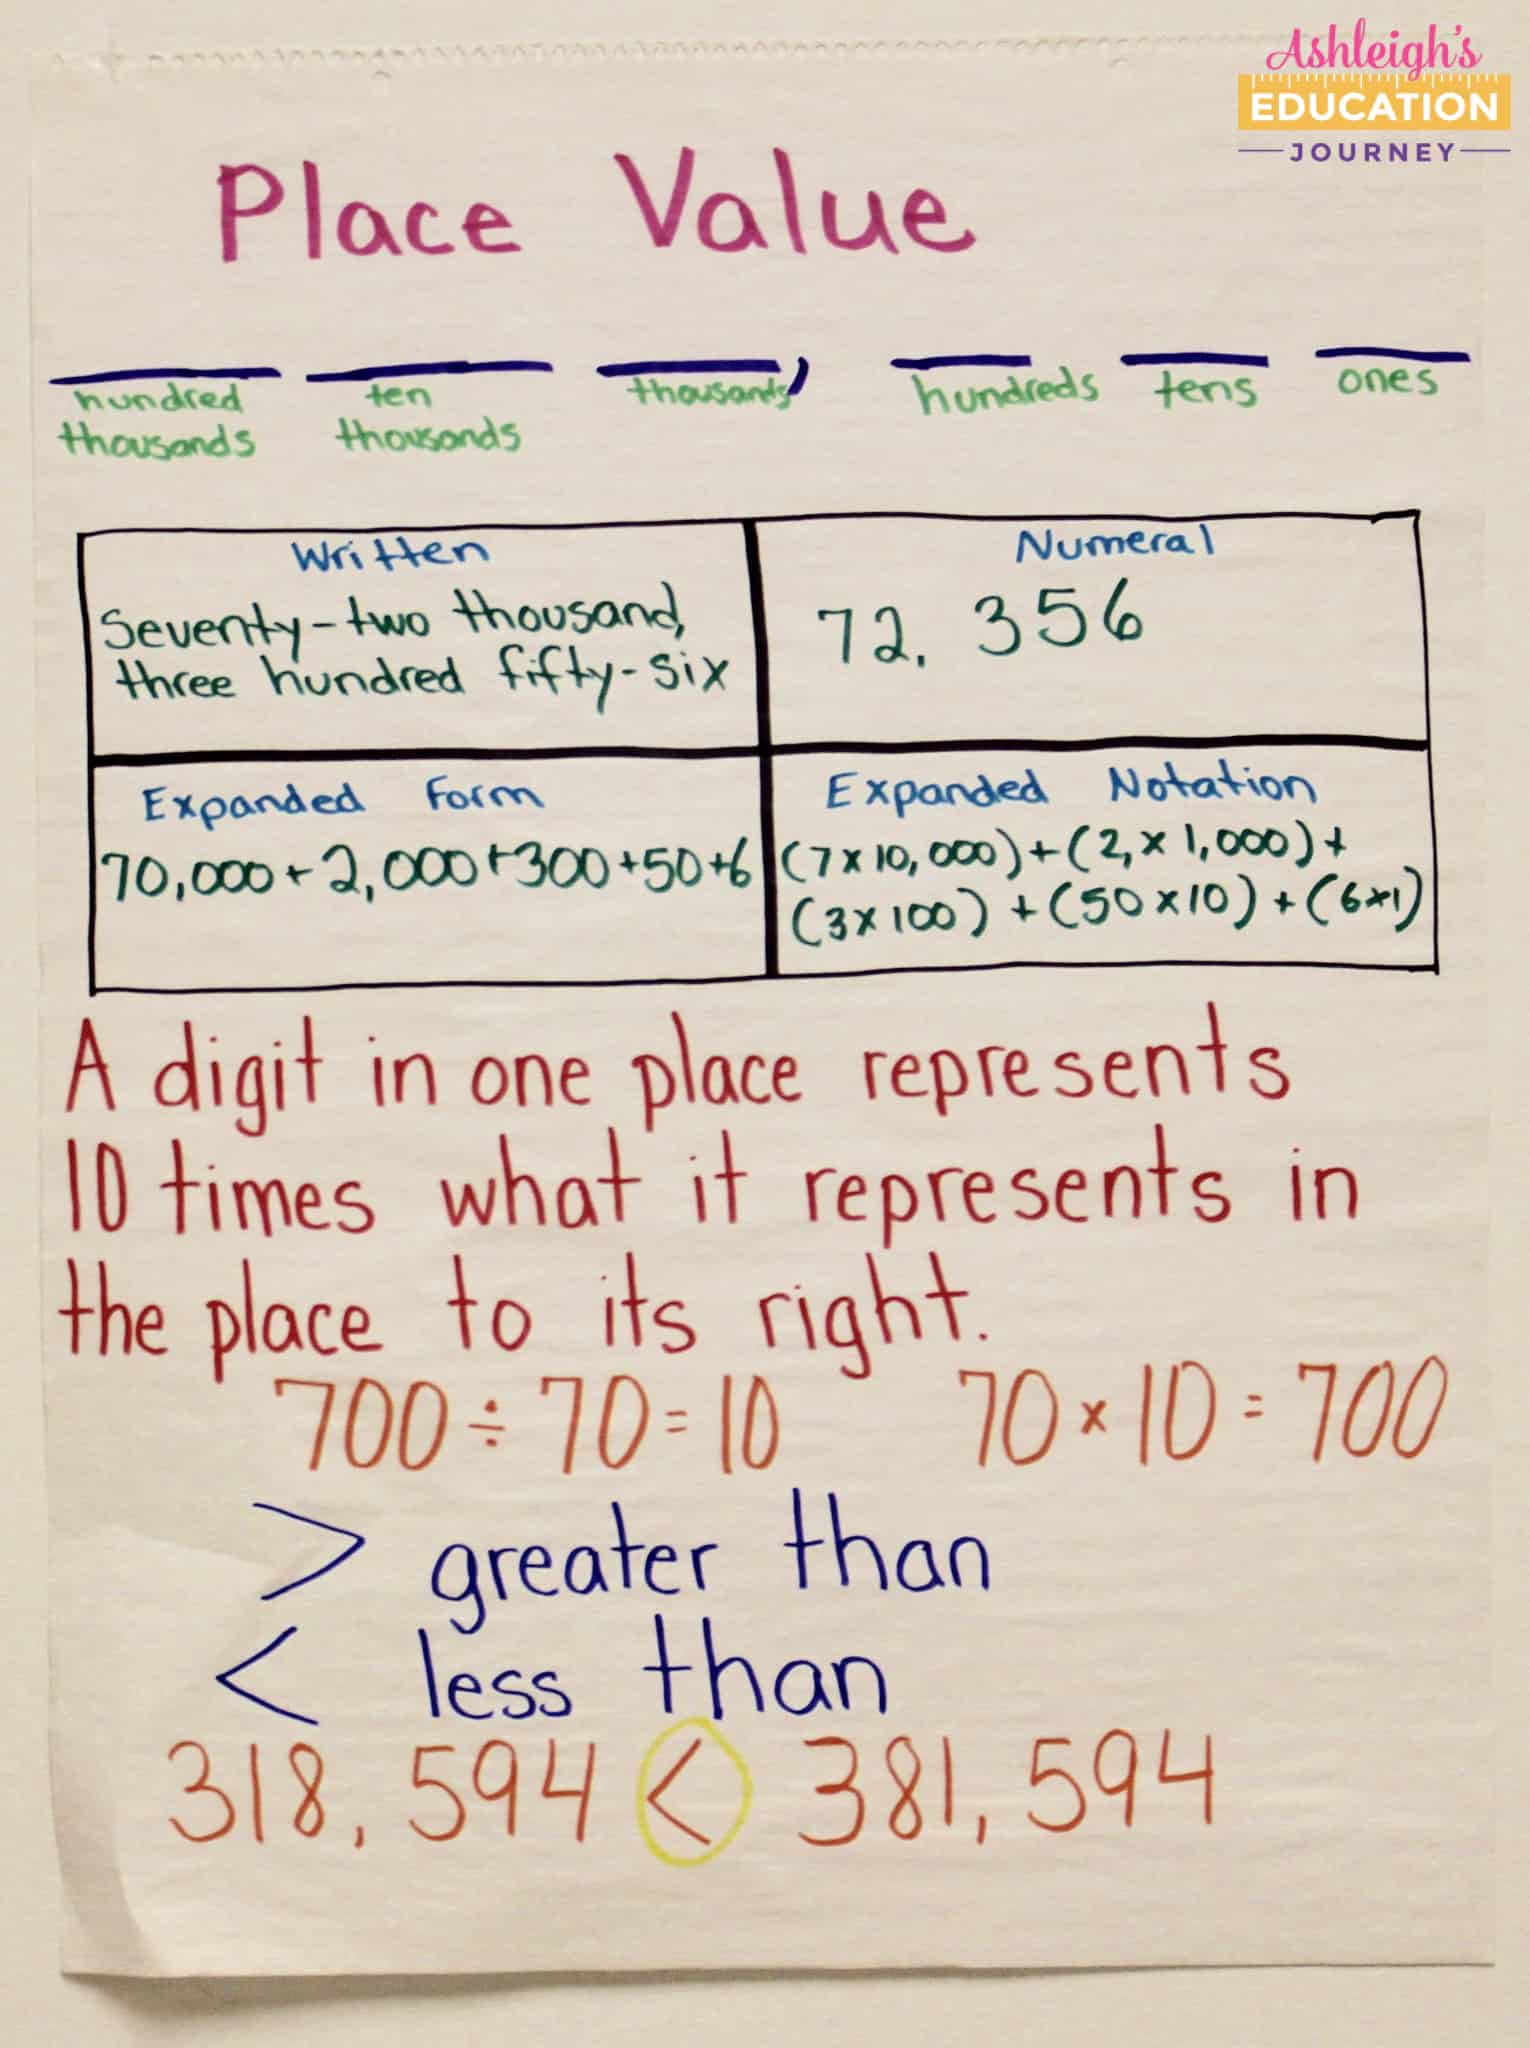 Ashleigh's
EDUCATION
JOURNEY
Place Value
hundred thousands ten thousands thousands, hundreds tens ones
Written
Seventy-two thousand,
three hundred fifty-six
Numeral
72, 356
Expanded Form
70,000 + 2,000 + 300 + 50 + 6
Expanded Notation
(7 x 10,000) + (2, x 1,000) +
(3 x 100) + (50 x 10) + (6 x 1)
A digit in one place represents
10 times what it represents in
the place to its right.
700 ÷ 70 = 10 70 x 10 = 700
> greater than
< less than
318, 594 < 381, 594